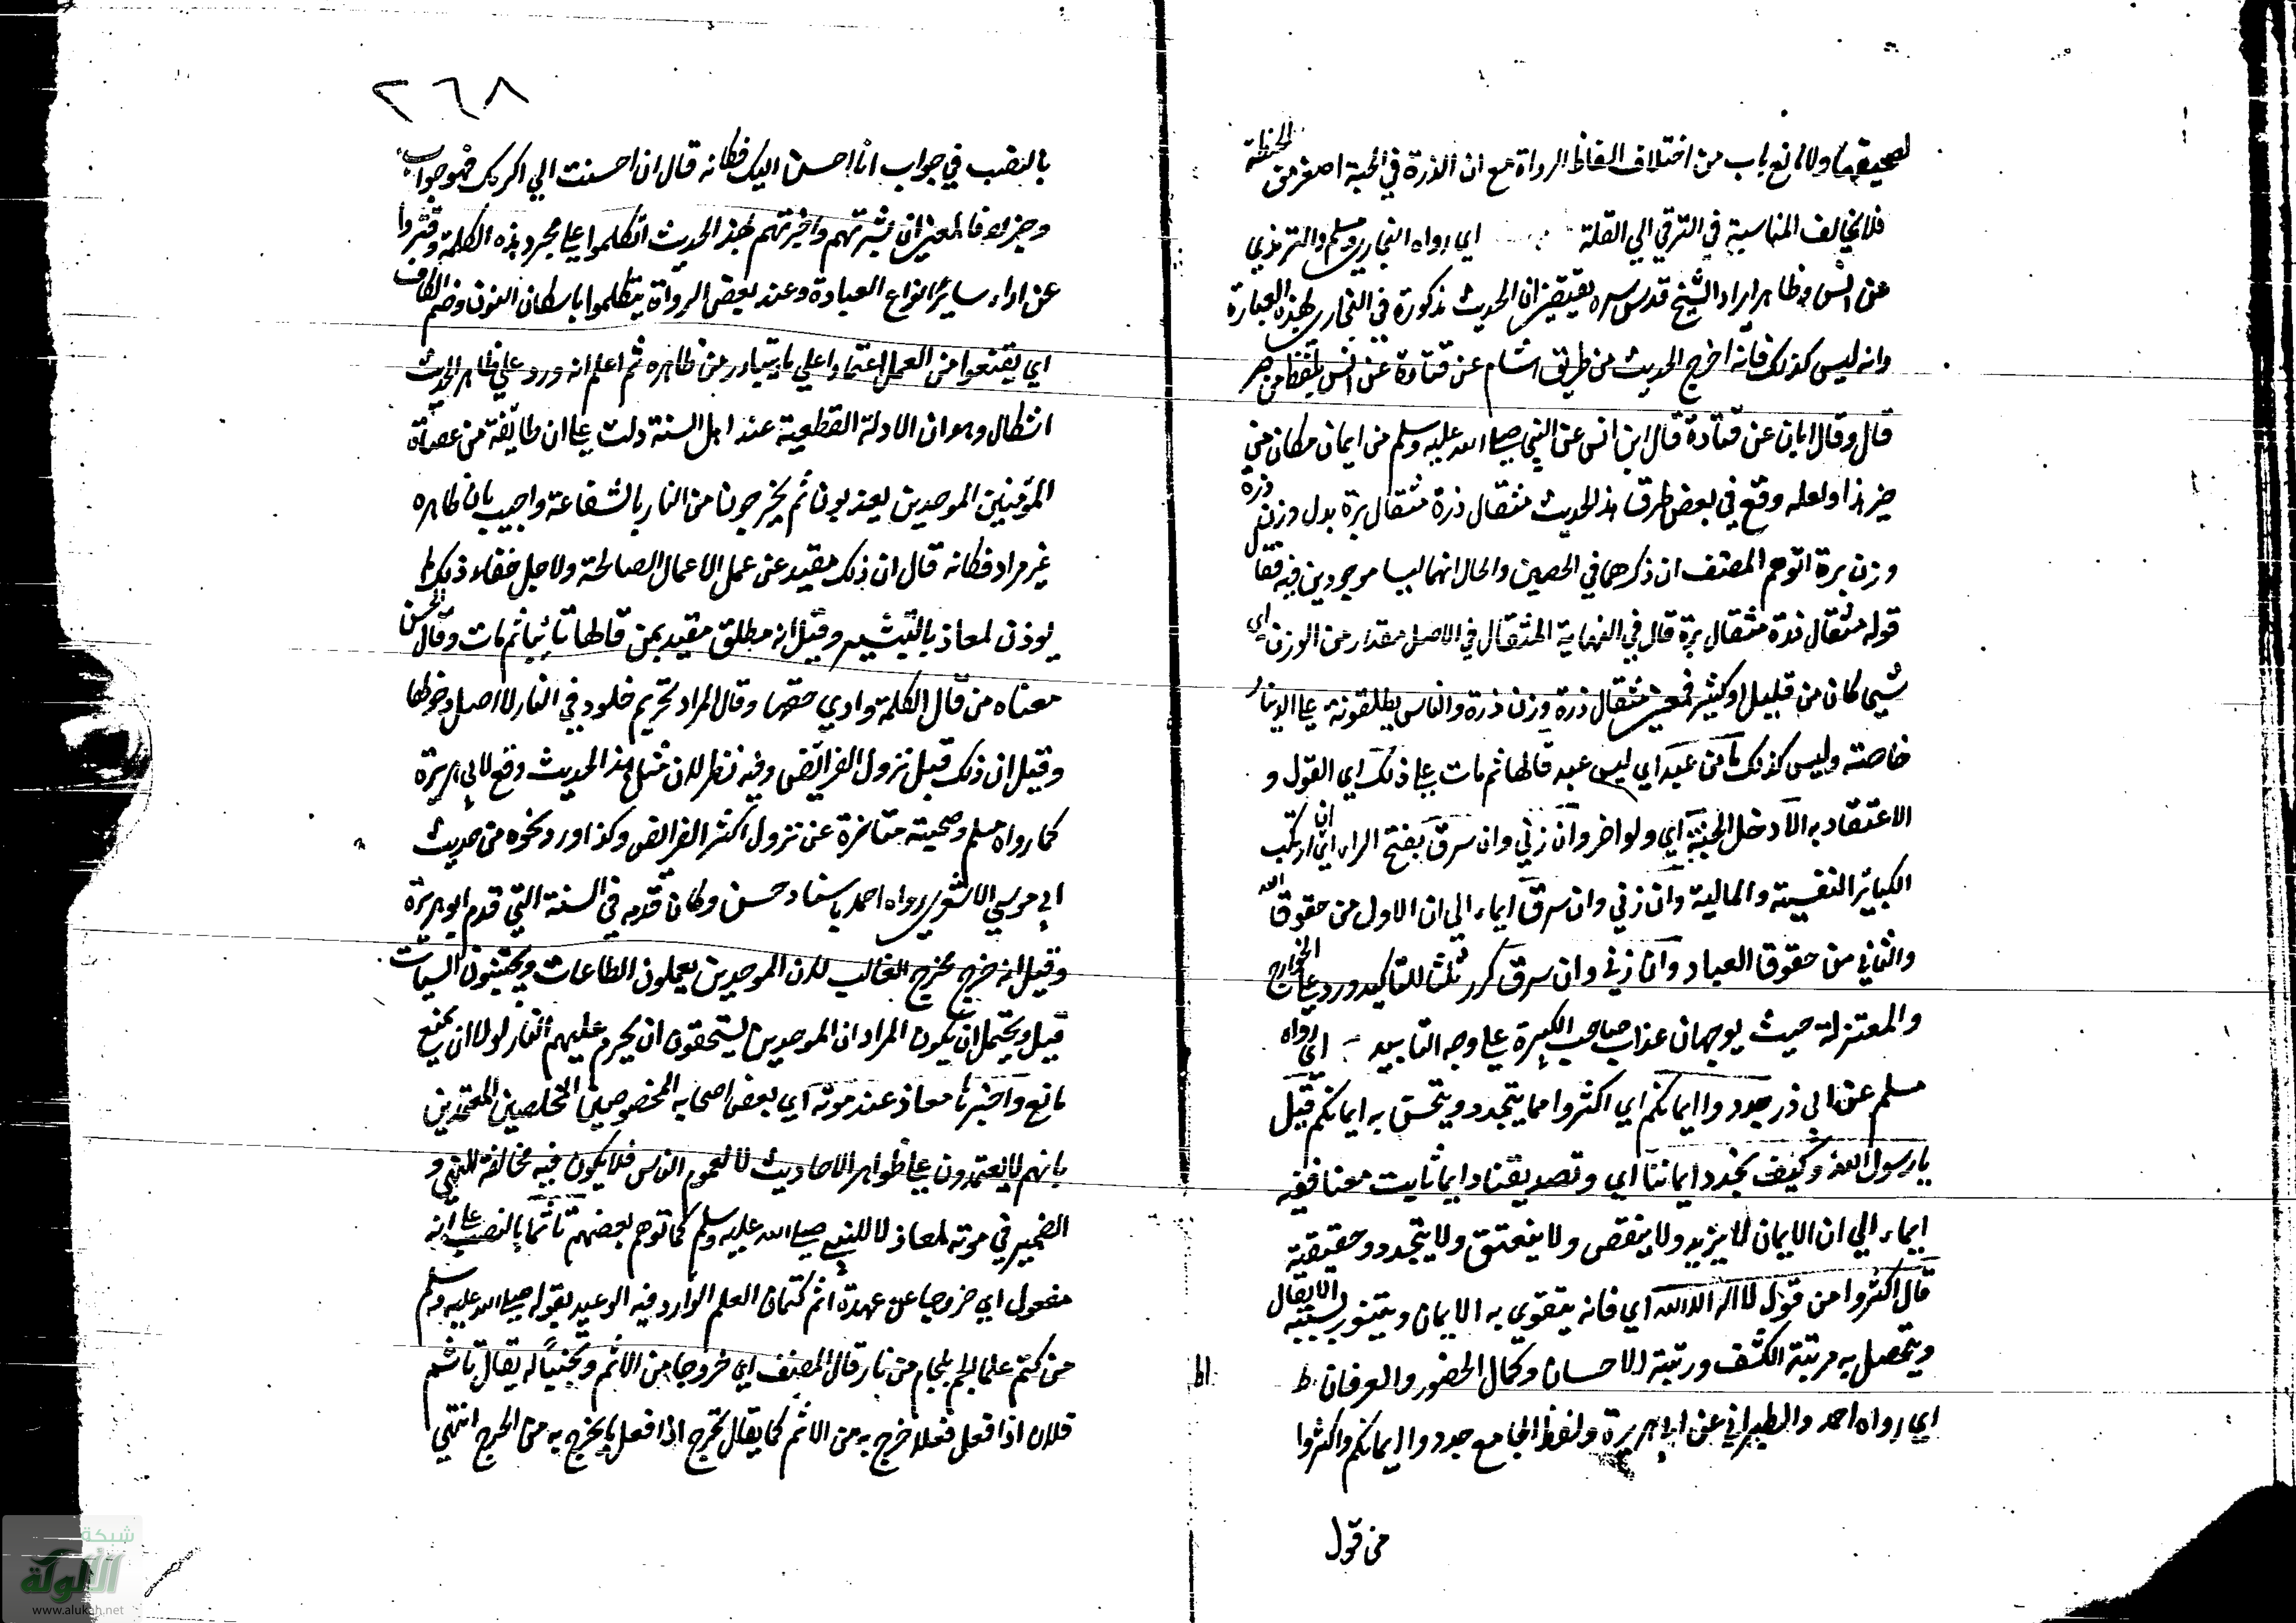 لصحيقهما ولا مانع باب من اختلاف الفاظ الرواة مع ان الذرة في الحبة اصغر من الحنطة
فلا يخالف المناسبة في الترقي الي القلة اي رواه البخاري ومسلم والترمذي
عن انس وظاهر ايراد الشيخ قدس سره يقتضي ان الحديث مذكورة في البخاري بهذه العبارة
وانه ليس كذلك فانه اخرج الحديث من طريق هشام عن قتادة عن انس بلفظ من خير
قال وقال ابان عن قتادة قال ابن انس عن النبي صلي الله عليه وسلم من ايمان مكان من
خير هذا ولعله وقع في بعض طرق هذا الحديث مثقال ذرة مثقال برة بدل وزن ذرة
وزن برة اتوهم المصنف ان ذكرهما في الحصين والحال انهما ليسا موجودين فيه فقا
قوله مثقال ذرة مثقال برة قال في النهاية المثقال في الاصل مقدار من الوزن اي
شيي كان من قليل او كثير فمعني مثقال ذرة وزن ذرة والناس يطلقونه علي الدينار
خاصته وليس كذلك ما من عبد اي ليس عبد قالها ثم مات علي ذلك اي القول و
الاعتقاد به الا دخل الجنة اي ولو اخر وان زني وان سرق بفتح الراء اي ان ارتكب
الكبائر النفسية والمالية وان زني وان سرق ايماء الي ان الاول من حقوق الله
والثاني من حقوق العباد وان زني وان سرق كرر ثلثا للتاكيد ورد علي الخوارج
والمعتزلة حيث يوجبان عذاب صاحب الكبيرة علي وجه التابيد اي رواه
مسلم عن ابي ذر جددوا ايمانكم اي اكثروا مما يتجدد ويتحسن به ايمانكم قيل
يا رسول الله وكيف نجدد ايماننا اي وتصديقنا دايما ثابت معنا ففيه
ايماء الي ان الايمان لا يزيد ولا ينقص ولا يتجدد وحقيقية
قال اكثروا من قول لا اله الا الله اي فانه يتقوي به الايمان ويتنور بسببه الايقال
ويتحصل به مرتبة الكشف ورتبة الاحسان وكمال الحضور والعرفان ط
اي رواه احمد والطبراني عن ابي هريرة ولفظ الجامع جددوا ايمانكم واكثروا
من قول
٢٦٨
بالنصب في جواب انا احسن اليك فكانه قال ان احسنت الي اكرمك فهو جواب
وجزاء فالمعني ان بشرتهم واخبرتهم بهذا الحديث اتكلموا علي مجرد هذه الكلمة وفتروا
عن اداء ساير انواع العبادة وعند بعض الرواة يتكلموا باسكان النون وضم الكاف
اي يقنعوا من العمل اعتمادا علي ما يتبادر من ظاهره ثم اعلم انه ورد علي ظاهر الحديث
اشكال وهو ان الادلة القطعية عند اهل السنة دلت علي ان طايفة من عصاة
المؤمنين الموحدين يعذبون ثم يخرجون من النار بالشفاعة واجيب بان ظاهره
غير مراد فكانه قال ان ذلك مقيد عن عمل الاعمال الصالحة ولاجل خفاء ذلك لم
يوذن لمعاذ بالتبشير وقيل انه مطلق مقيد بمن قالها تائبا ثم مات وقال الحسن
معناه من قال الكلمة وادي حقها وقال المراد تحريم خلود في النار لا اصل دخولها
وقيل ان ذلك قبل نزول الفرائض وفيه نظر لان مثل هذا الحديث وقع لابي هريرة
كما رواه مسلم وصحبته متاخرة عن نزول اكثر الفرائض وكذا ورد نحوه من حديث
ابي موسي الاشعري رواه احمد باسناد حسن وكان قدومه في السنة التي قدم ابو هريرة
وقيل انه خرج مخرج الغالب لان الموحدين يعملون الطاعات ويجتنبون السيآت
قيل ويحتمل ان يكون المراد ان الموحدين يستحقون ان يحرم عليهم النار لولا ان يمنع
مانع واخبر بها معاذ عند موته اي بعض اصحابه المخصوصين المخلصين المعتمدين
بانهم لا يعتمدون علي ظواهر الاحاديث لا لعموم الناس فلا يكون فيه مخالفة للنهي و
الضمير في موته لمعاذ لا للنبي صلي الله عليه وسلم كما توهم بعضهم تاثما بالنصب علي انه
مفعول اي خروجا عن عهدة اثم كتمان العلم الوارد فيه الوعيد بقوله صلي الله عليه وسلم
من كتم علما الجم بلجام من نار قال المصنف اي خروجا من الاثم وتجنبا له يقال تاثم
فلان اذا فعل فعلا خرج به من الاثم كما يقال تحرج اذا فعل ما يخرج به من الحرج انتهي
شبكة
الألوكة
www.alukah.net